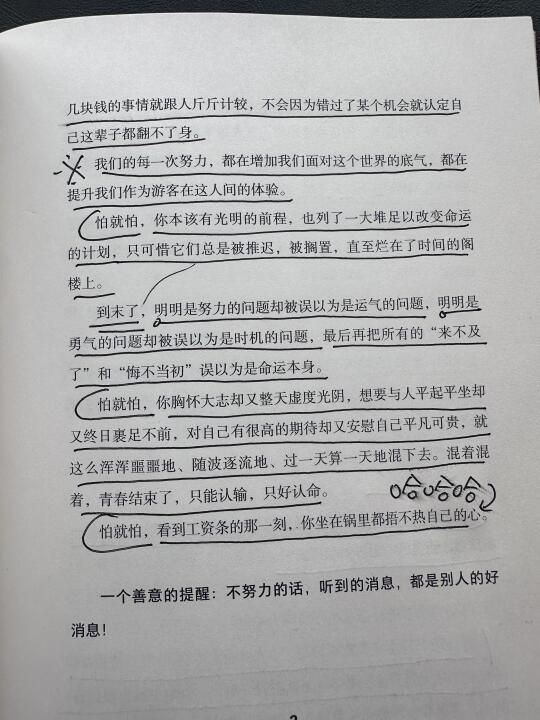 几块钱的事情就跟人斤斤计较，不会因为错过了某个机会就认定自
己这辈子都翻不了身。
我们的每一次努力，都在增加我们面对这个世界的底气，都在
提升我们作为游客在这人间的体验。
怕就怕，你本该有光明的前程，也列了一大堆足以改变命运
的计划，只可惜它们总是被推迟，被搁置，直至烂在了时间的阁
楼上。
到末了，明明是努力的问题却被误以为是运气的问题，明明是
勇气的问题却被误以为是时机的问题，最后再把所有的“来不及
了”和“悔不当初”误以为是命运本身。
怕就怕，你胸怀大志却又整天虚度光阴，想要与人平起平坐却
又终日裹足不前，对自己有很高的期待却又安慰自己平凡可贵，就
这么浑浑噩噩地、随波逐流地、过一天算一天地混下去。混着混
着，青春结束了，只能认输，只好认命。
怕就怕，看到工资条的那一刻，你坐在锅里都捂不热自己的心。
一个善意的提醒：不努力的话，听到的消息，都是别人的好
消息！